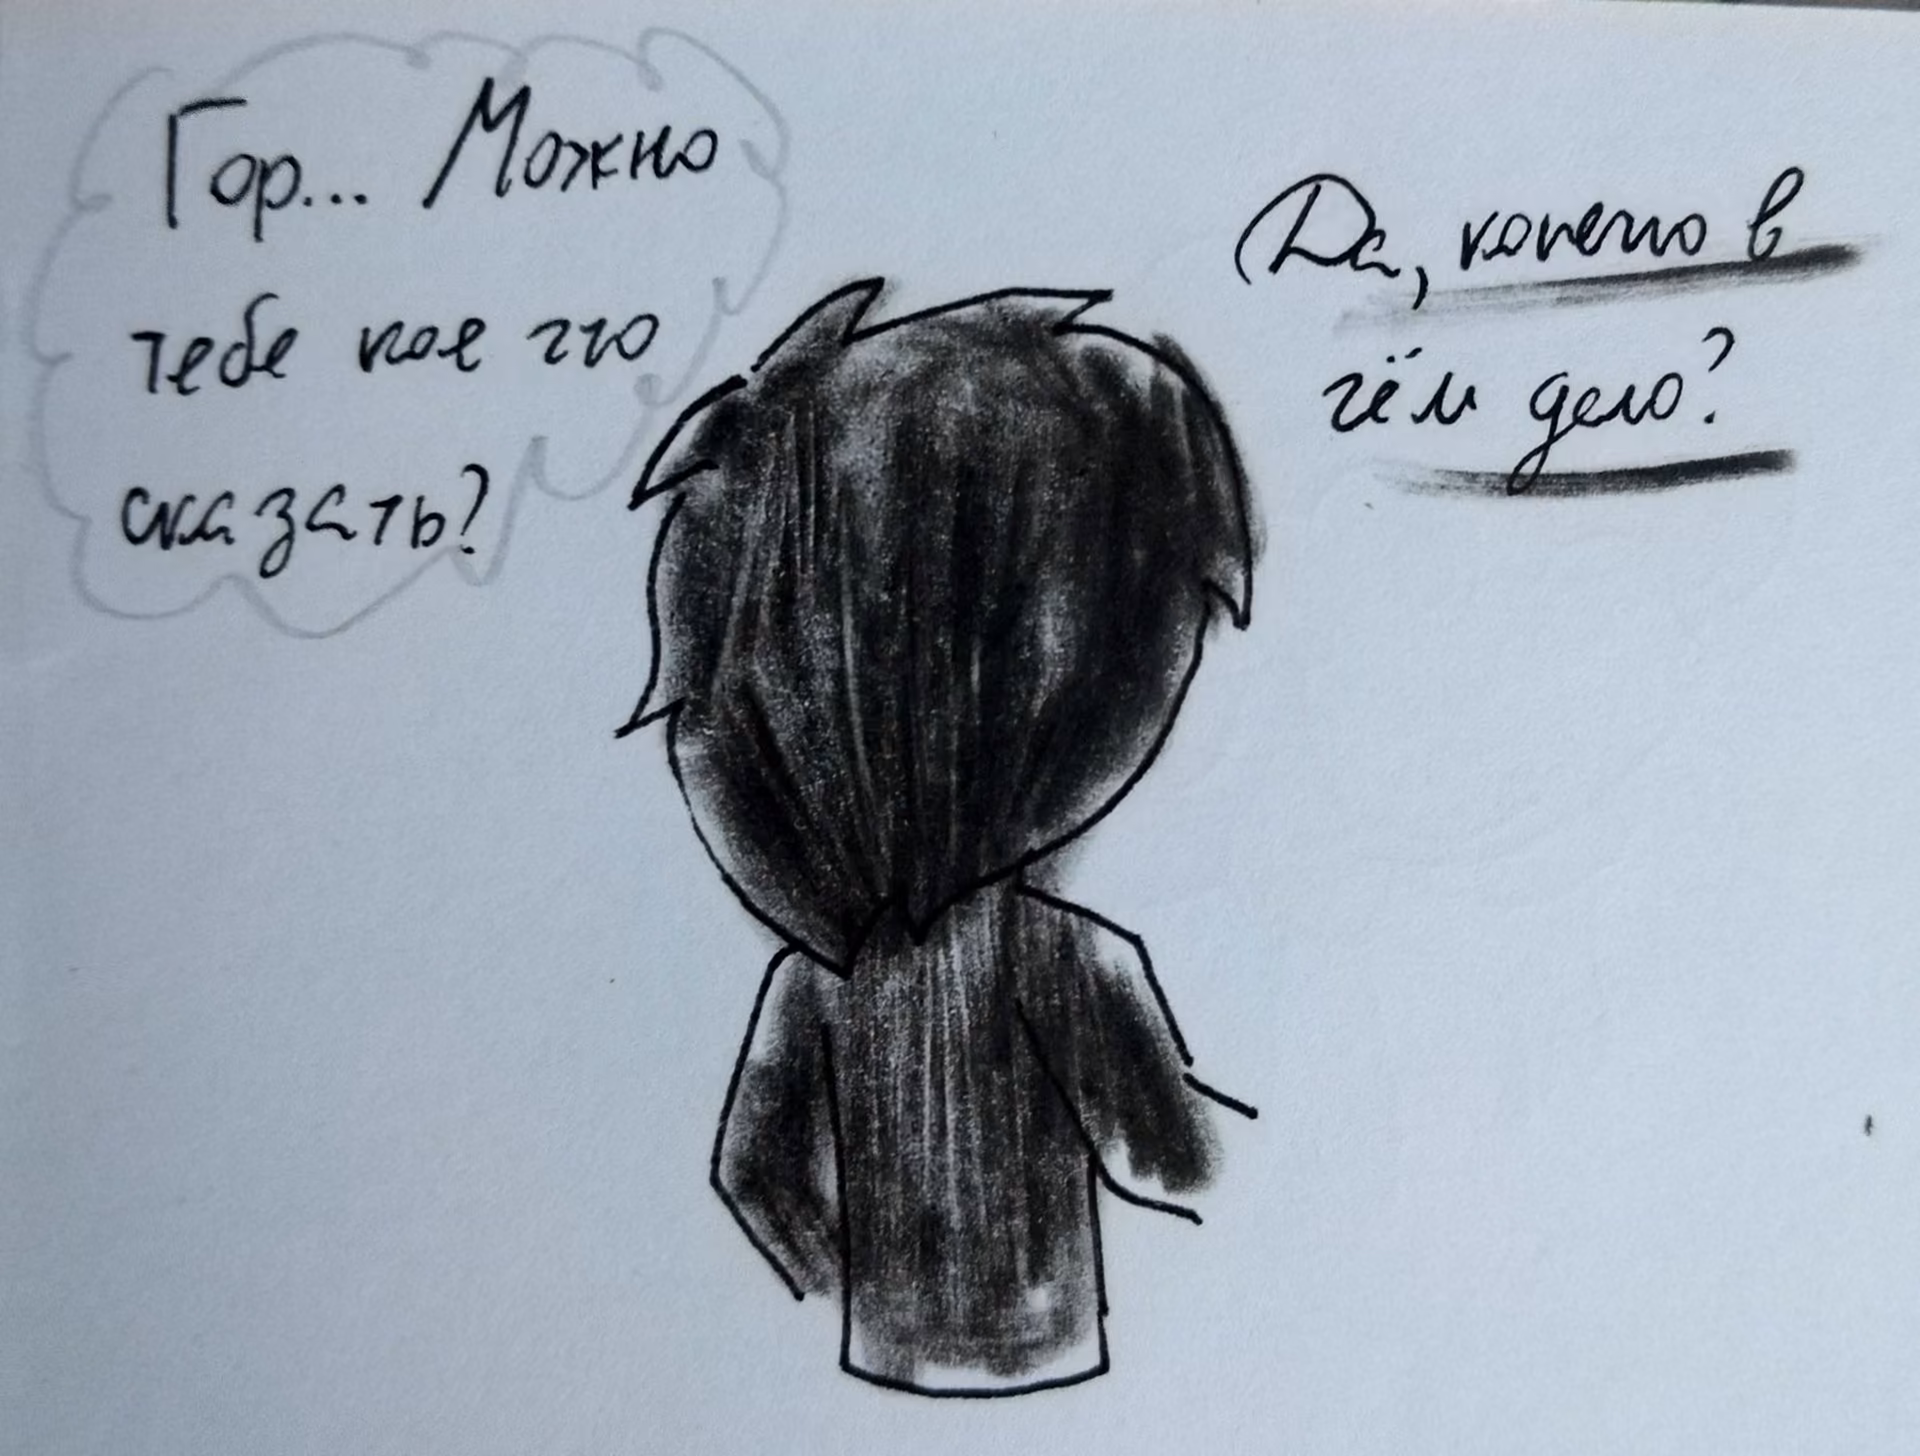 Гор... Можно
тебе кое что
сказать?
Да, конечно в
чём дело?